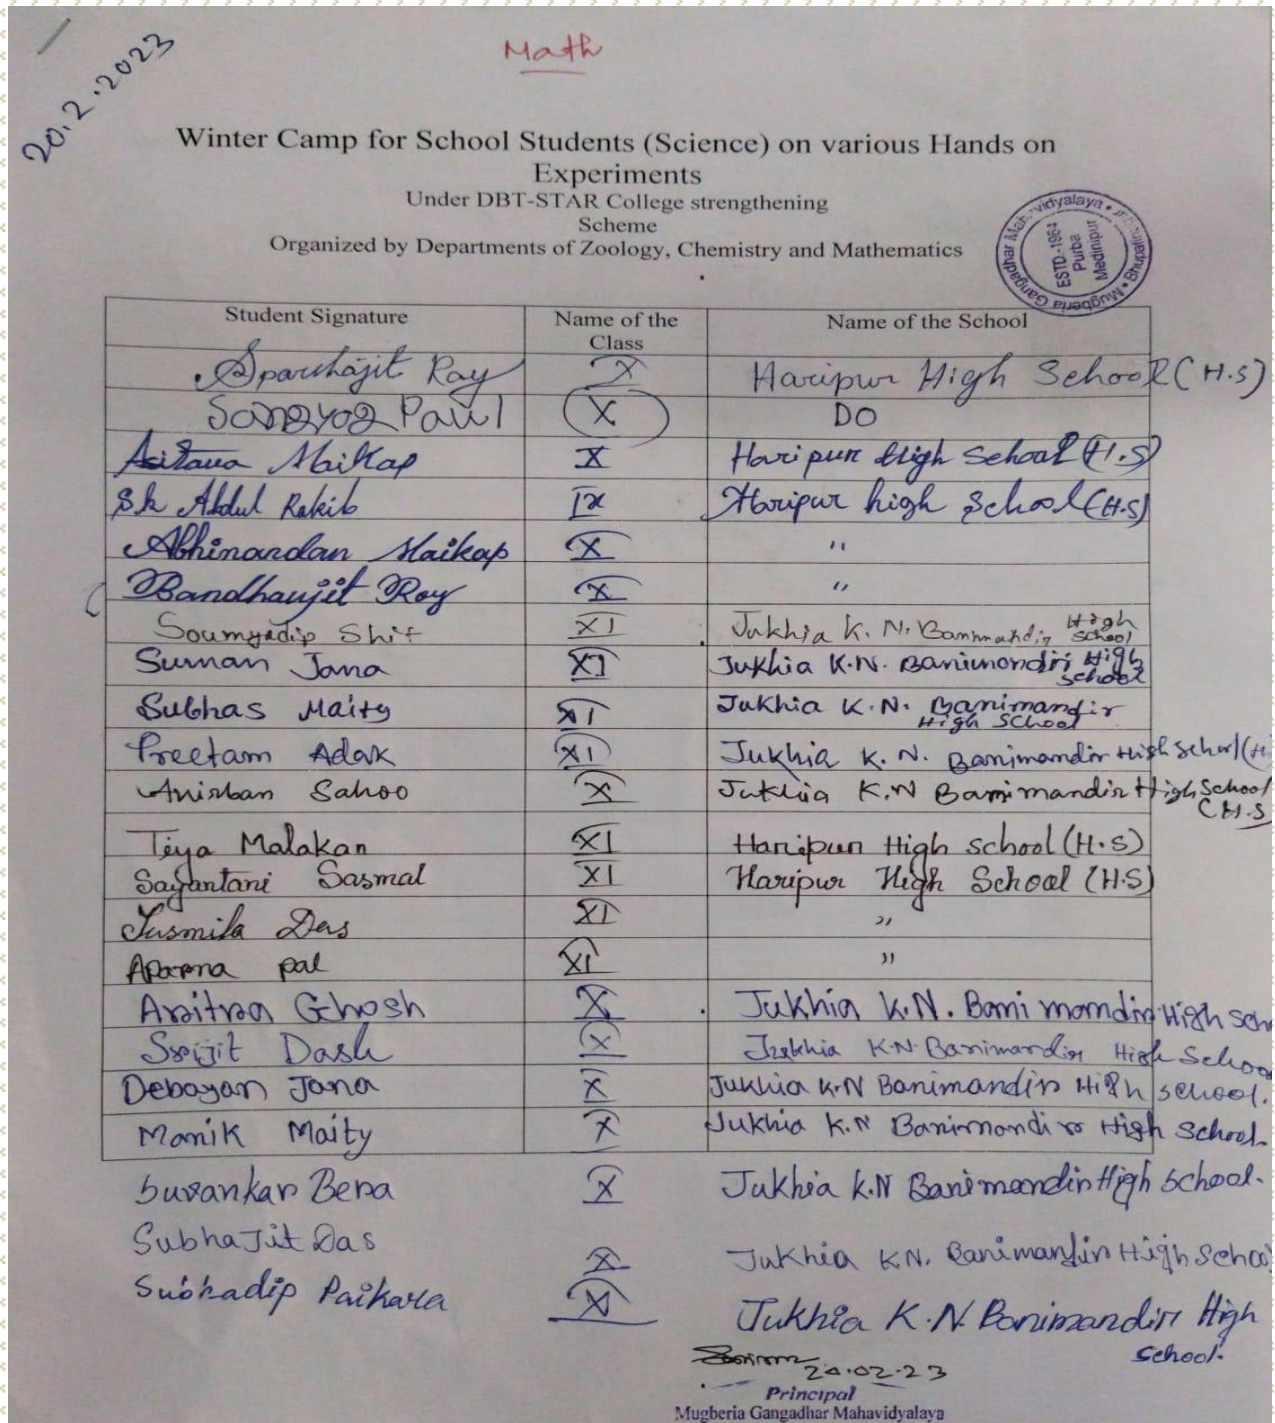 Math
20.2.2023
Winter Camp for School Students (Science) on various Hands on
Experiments
Under DBT-STAR College strengthening
Scheme
Organized by Departments of Zoology, Chemistry and Mathematics
Mugberia Gangadhar Mahavidyalaya
ESTD.-1964
Purba
Medinipur
Student Signature Name of the Class Name of the School
Sparshajit Ray X Haripur High School (H.S)
Sangyog Paul X DO
Maikap X Haripur High School (H.S)
Sk Abdul Rakib IX Haripur high School (H.S)
Abhinandan Maikap X "
Bandhanjit Roy X "
Soumyadip Shit XI Jukhia K. N. Banimandir High School
Suman Jana XI Jukhia K.N. Banimondir High School
Subhas Maity XI Jukhia K.N. Banimandir High School
Preetam Adak XI Jukhia K. N. Banimandir High School (H
Anirban Sahoo X Jukhia K.N Banimandir High School (H.S
Tiya Malakar XI Haripur High school (H.S)
Sayantani Sasmal XI Haripur High School (H.S)
Susmila Das XI "
Aparna pal XI "
Aritra Ghosh X Jukhia K.N. Bani mamdir High Sch
Srijit Dash X Jukhia K.N. Banimandir High Schoo
Debayan Jana X Jukhia K.N Banimandir High school.
Manik Maity X Jukhia K.N Banimandir High School.
Suvankar Bera X Jukhia K.N Banimandir High School.
Subhajit Das X Jukhia K.N. Banimandir High Schoo
Subhadip Paikara XI Jukhia K.N. Banimandir High School.
20.02.23
Principal
Mugberia Gangadhar Mahavidyalaya